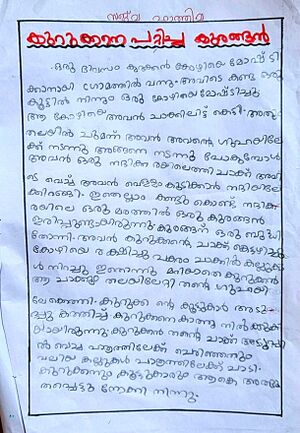 സജ്‌വ ഫാത്തിമ
കുറുക്കനെ പറ്റിച്ച കുരങ്ങൻ
ഒരു ദിവസം കുറുക്കൻ കോഴിയെ മോഷ്ടി
ക്കാനായി ഗ്രാമത്തിൽ വന്നു. അവിടെ കണ്ട ഒരു
കൂട്ടിൽ നിന്നും ഒരു കോഴിയെ മോഷ്ടിച്ചു
ആ കോഴിയെ അവൻ ചാക്കിലിട്ട് കെട്ടി. അതും
തലയിൽ ചുമന്ന് അവൻ അവന്റെ ഗുഹയിലേ
ക്ക് നടന്നു അങ്ങനെ നടന്നു പോകുമ്പോൾ
അവൻ ഒരു നദിക്ക രയിലെത്തി ചാക്ക് അവി
ടെ വെച്ച് അവൻ വെള്ളം കുടിക്കാൻ നദിയിലേ
ക്കിറങ്ങി. ഇതെല്ലാം കണ്ടും കൊണ്ട് നദിക്ക്
രയിലെ ഒരു മരത്തിൽ ഒരു കുരങ്ങൻ
ഇരിപ്പുണ്ടായിരുന്നു കുരങ്ങന് ഒരു ബുദ്ധി
തോന്നി. അവൻ കുറുക്കന്റെ ചാക്ക് കെട്ടഴിച്ച്
കോഴിയെ രക്ഷിച്ചു പകരം ചാക്കിൽ കല്ലുക
ൾ നിറച്ചു ഇതൊന്നും അറിയാതെ കുറുക്കൻ
ആ ചാക്കും തലയിലേറ്റി തന്റെ ഗുഹയി
ലേക്കെത്തി. കുറുക്ക ന്റെ കൂട്ടുകാർ അടു
പ്പു കത്തിച്ച് കുറുക്കനെ കാത്തു നിൽക്കുക
യായിരുന്നു. കുറുക്കൻ തന്റെ ചാക്ക് അടുപ്പി
ൽ വെച്ച പാത്രത്തിലേക്ക് ചൊരിഞ്ഞതും
വലിയ കല്ലുകൾ പാത്രത്തിലേക്ക് ചാടി.
കുറുക്കനും കൂട്ടുകാരും ആകെ അത്ഭു
തപ്പെട്ടു നോക്കി നിന്നു.